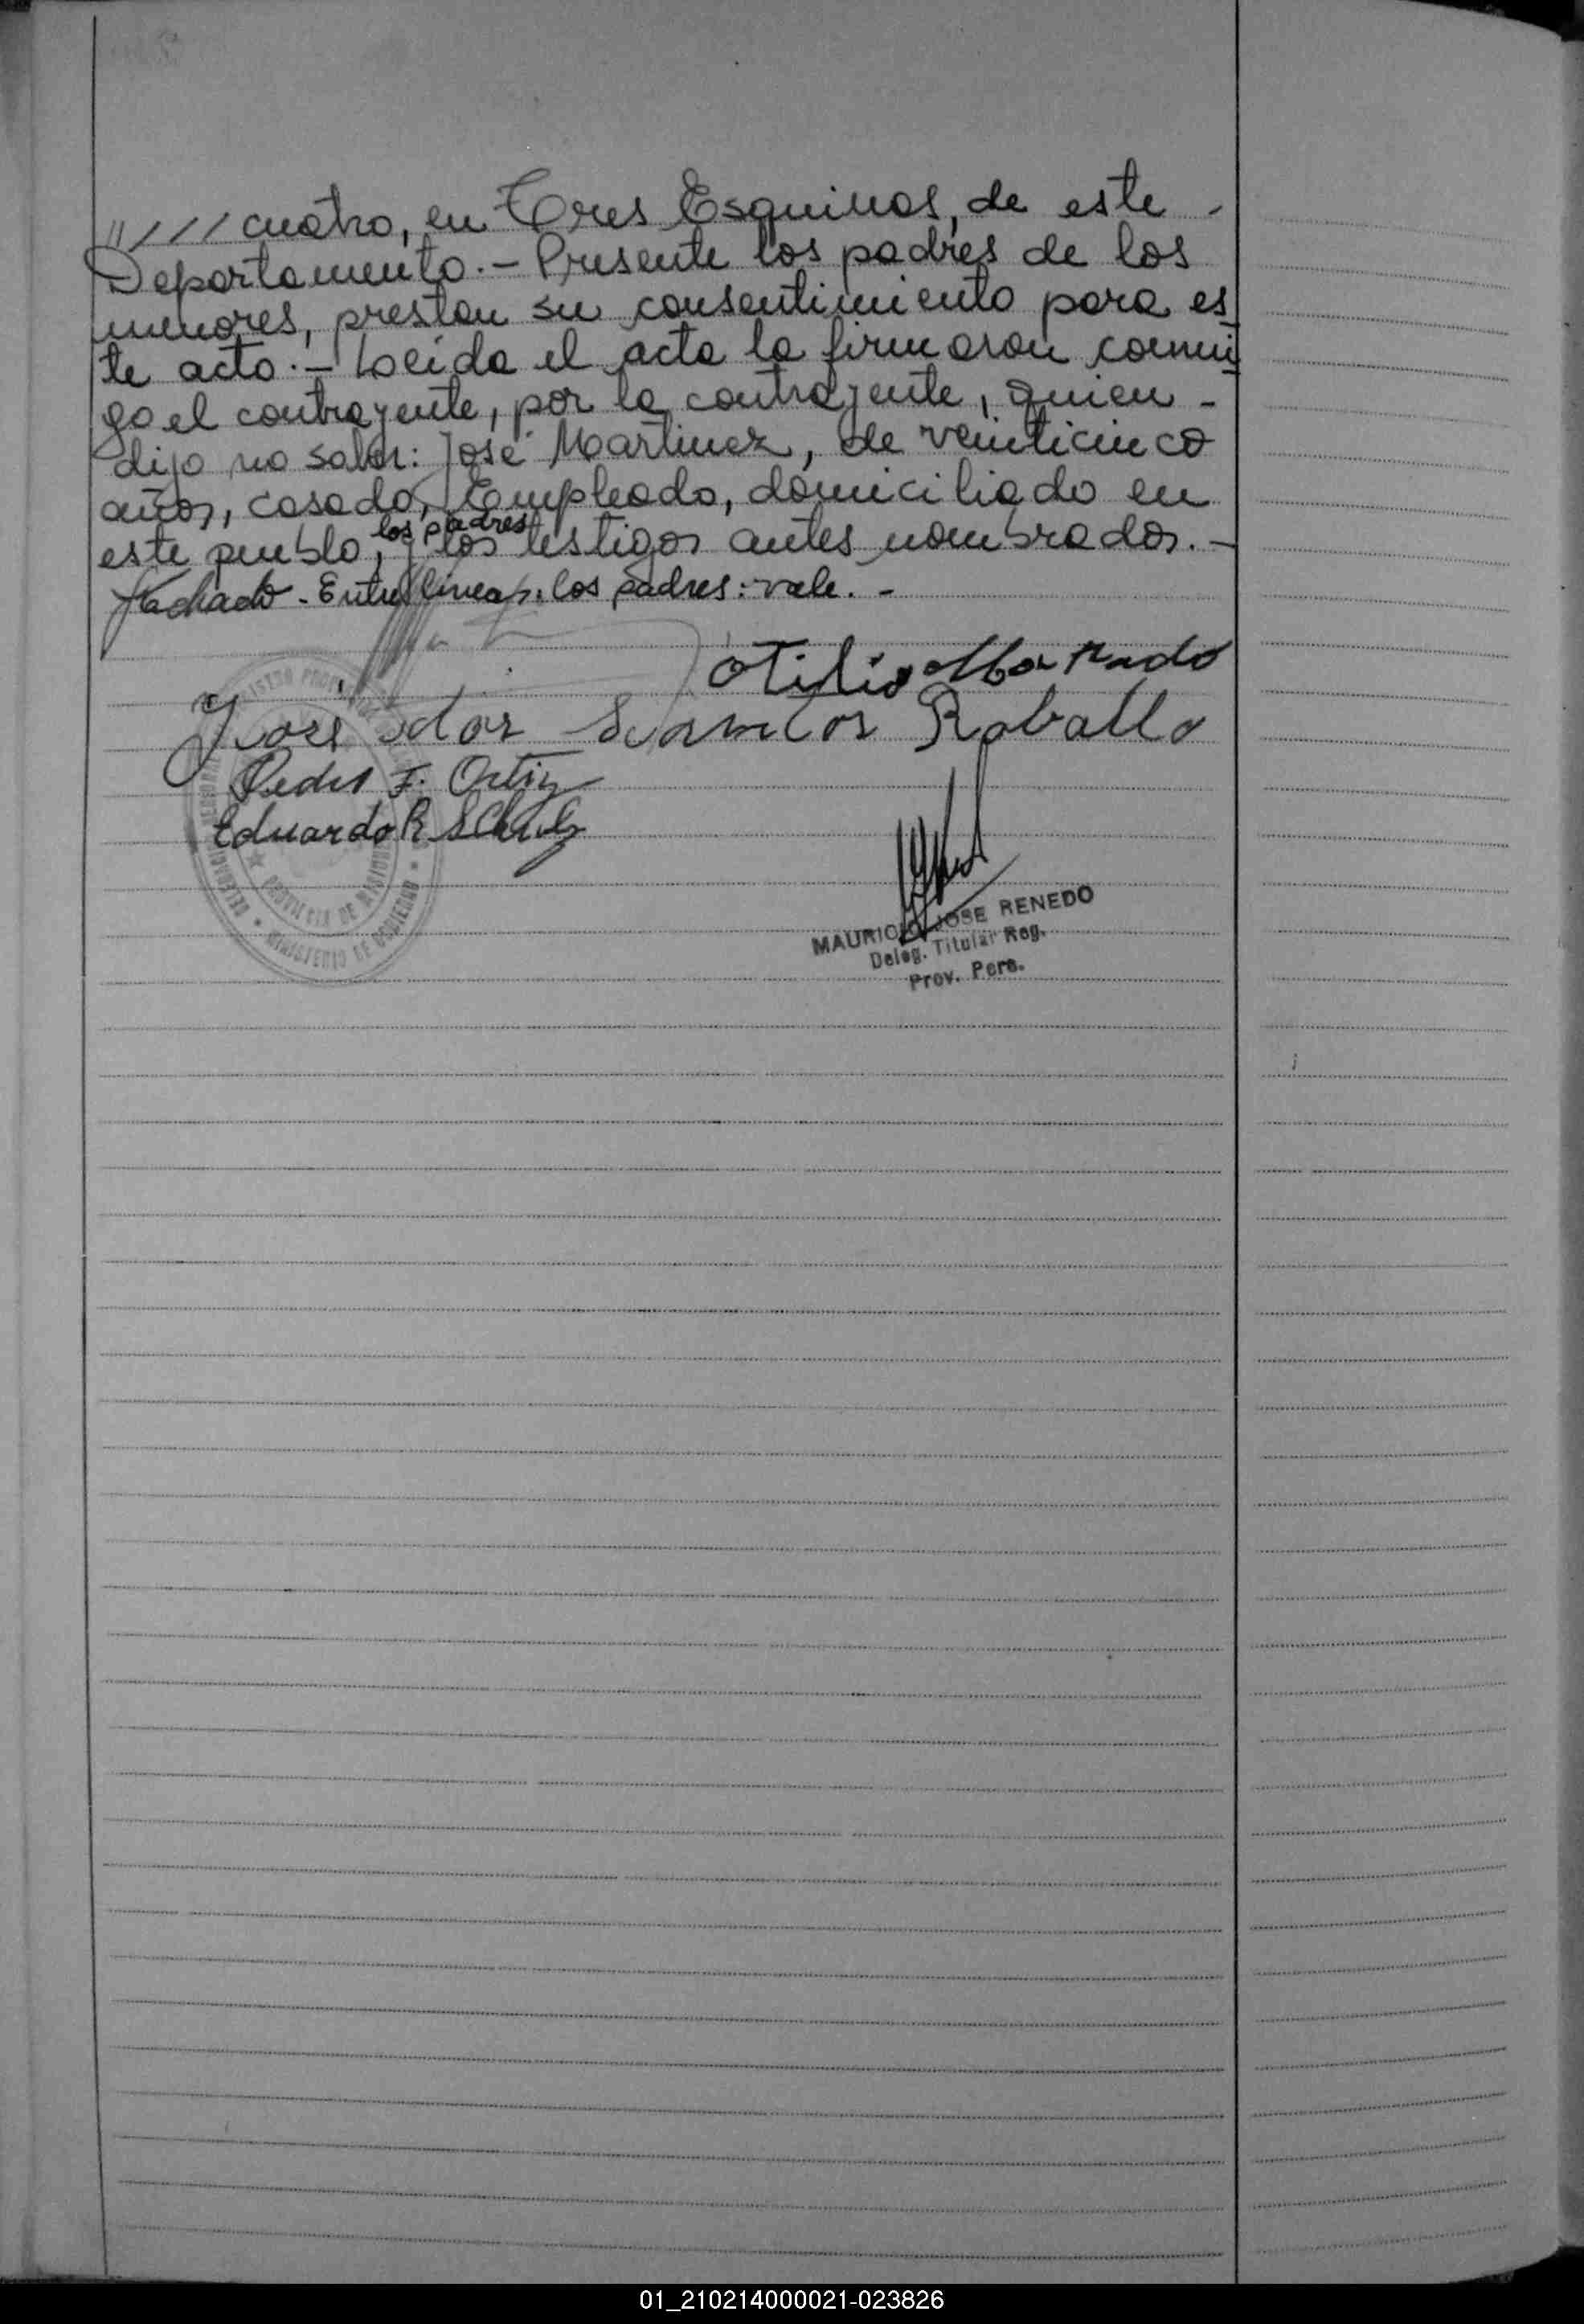 //// cuatro, en Tres Esquinas, de este -
Departamento.- Presente los padres de los
menores, prestan su consentimiento para es
te acto.- Leída el acta la firmaron conmi
go el contrayente, por la contrayente, quien -
dijo no saber: José Martinez, de veinticinco
años, casado, Empleado, domiciliado en
los padres
este pueblo, y los testigos antes nombrados.-
Machado - Entre lineas: los padres: vale. -
Otilio
José dos Santos Roballo
Pedro F. Ortiz
Eduardo R
MAURICIO JOSE RENEDO
Deleg. Titular Reg.
Prov. Pers.
PROVINCIA DE MISIONES
MINISTERIO DE GOBIERNO
01_210214000021-023826